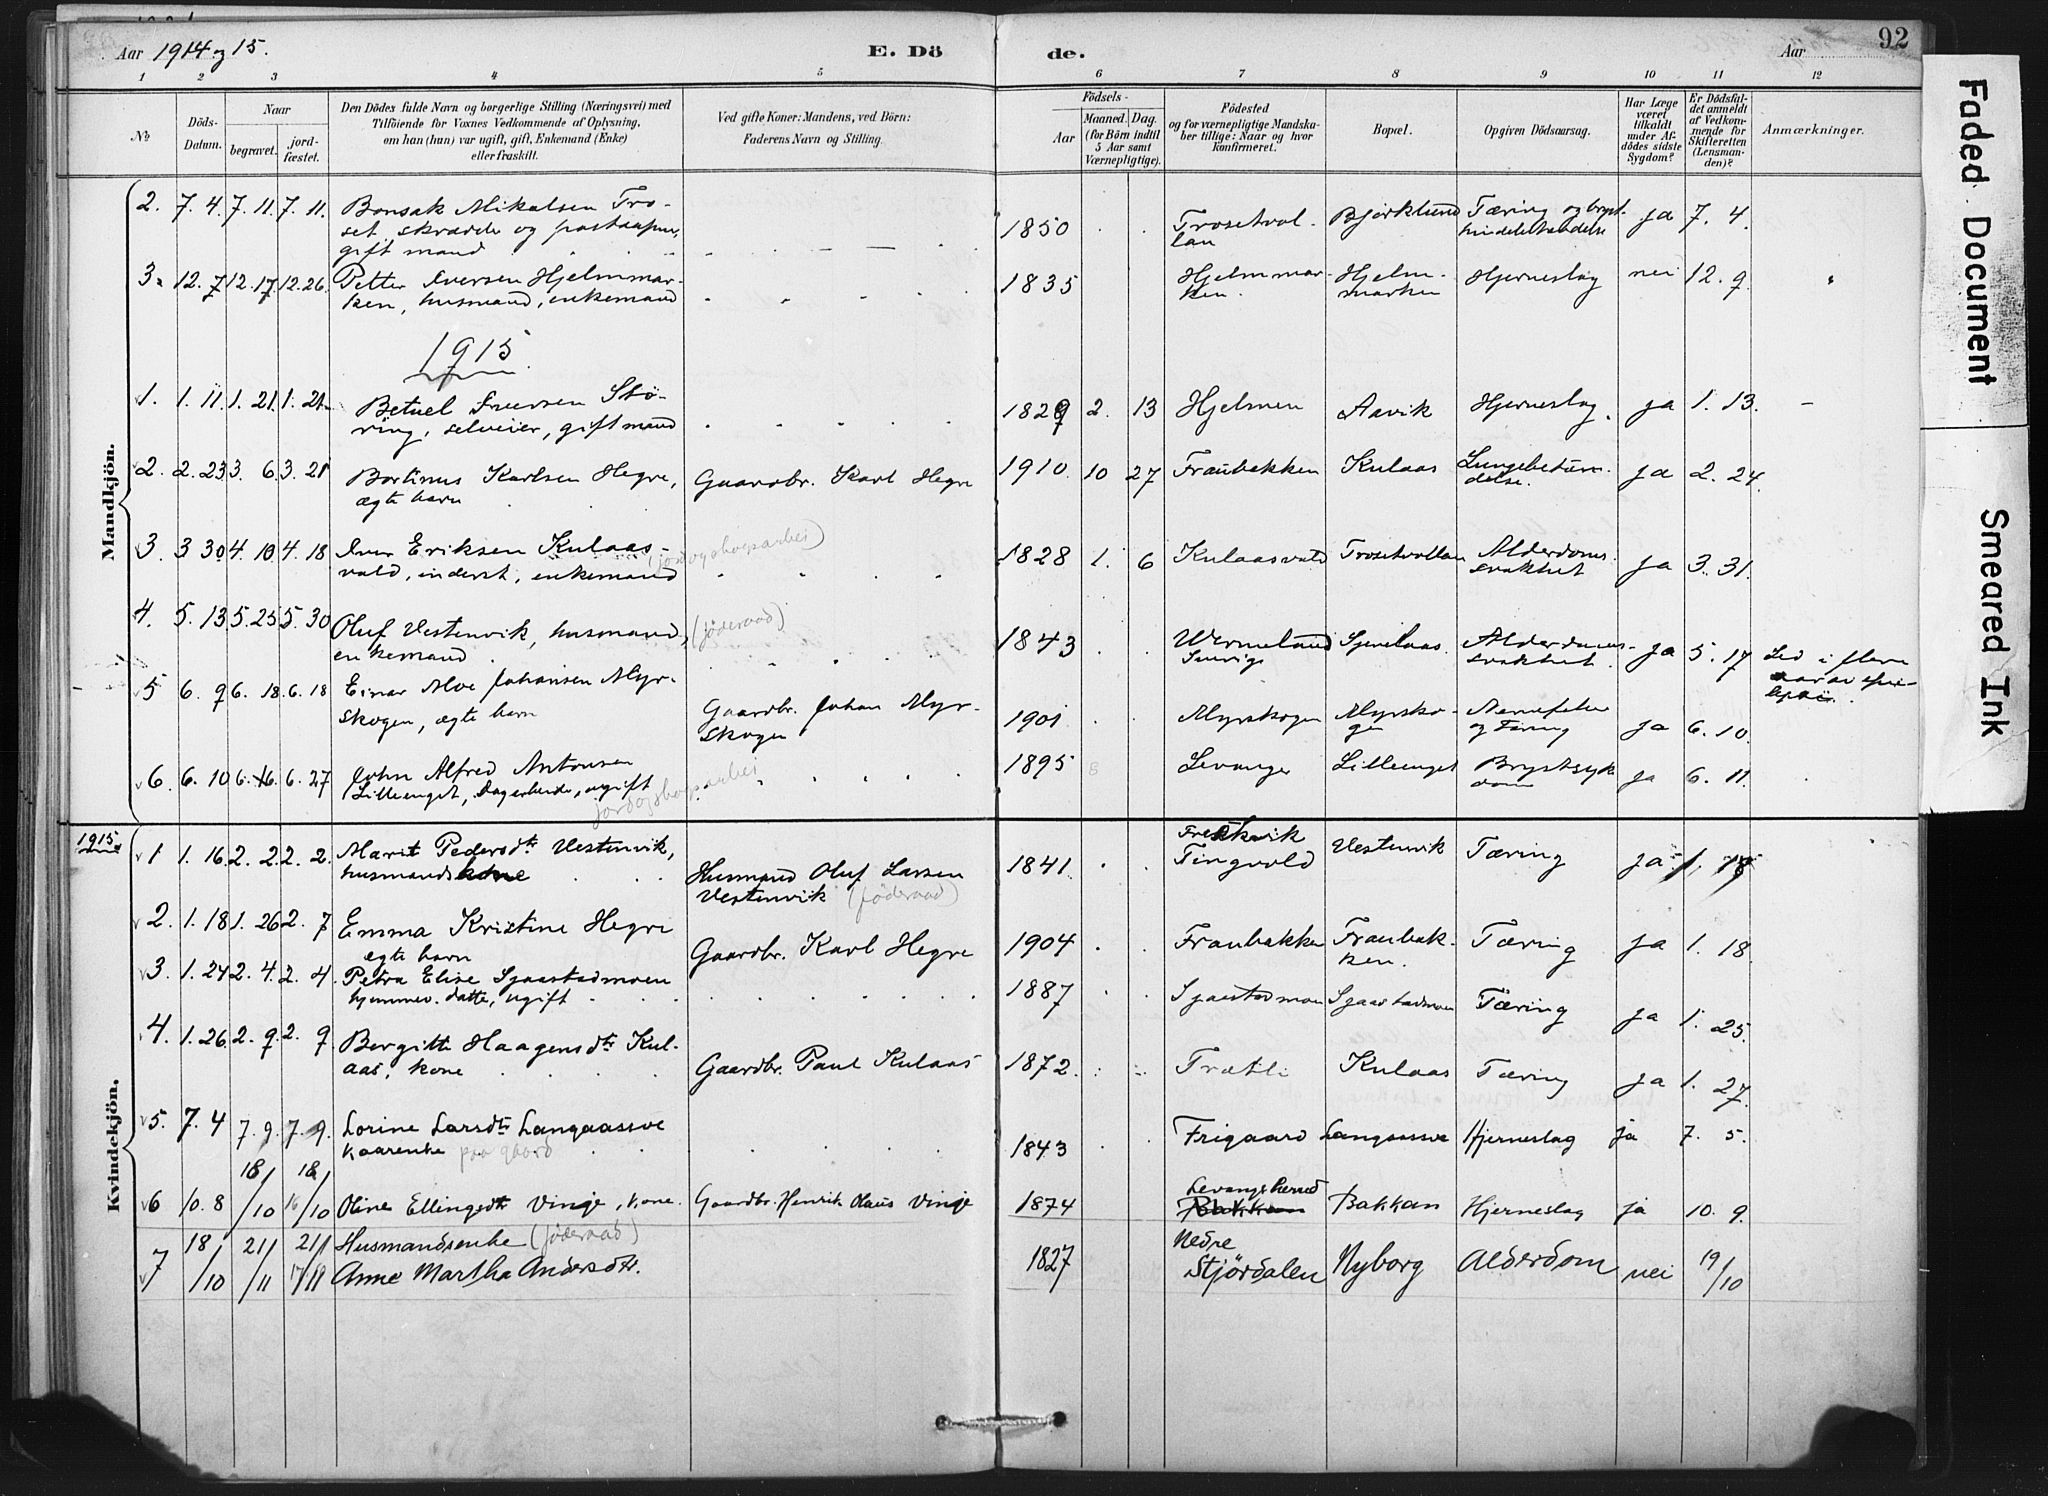 Aar 1914 og 15.
E. Dö
de.
Aar
92
1 2 3 4 5 6 7 8 9 10 11 12
No
Döds-Datum.
Naar
begravet.
jord-fæstet.
Den Dödes fulde Navn og borgerlige Stilling (Næringsvei) med
Tilföiende for Voxnes Vedkommende af Oplysning,
om han (hun) var ugift, gift, Enkemand (Enke)
eller fraskilt.
Ved gifte Koner: Mandens, ved Börn:
Faderens Navn og Stilling.
Födsels-
Aar
Maaned. Dag.
(for Börn indtil
5 Aar samt
Værnepligtige).
Födested
og for værnepligtige Mandska-
ber tillige: Naar og hvor
konfirmeret.
Bopæl.
Opgiven Dödsaarsag.
Har Læge
været
tilkaldt
under Af-
dödes sidste
Sygdom?
Er Dödsfal-
det anmeldt
af Vedkom-
mende for
Skifteretten
(Lensman-
den)?
Anmærkninger.
Mandkjön.
2. 7. 4. 7. 11. 7. 11. Bonsak Mikalsen Tro-
set, skrædder og postaapner,
gift mand
1850 Trosetvol-
lan Bjørklund Tæring og bryst-
hindebetændelse ja 7. 4.
3. 12. 7 12. 17 12. 26. Petter Iversen Hjelmmar-
ken, husmand, enkemand
1835 Hjelmmar-
ken. Hjelm-
marken Hjerneslag nei 12. 9.
1915
1. 1. 11. 1. 21. 1. 21. Betuel Iversen Stö-
ring, selveier, gift mand
1829 2. 13 Hjelmen Aavik Hjerneslag. ja 1. 13. –
2. 2. 23 3. 6. 3. 21 Bortinus Karlsen Hegre,
ægte barn
Gaardbr. Karl Hegre 1910 10 27 Fraubakken Kulaas Lungebetæn-
delse. ja 2. 24.
3. 3 30 4. 10 4. 18 Iver Eriksen Kulaas-
vald, inderst, enkemand (jordogskogsarbei)
1828 1. 6 Kulaasvald Trosetvollan Alderdoms-
svakhet ja 3. 31.
4. 5. 13 5. 25 5. 30 Oluf Vestenvik, husmand, (föderaad)
enkemand
1843 Wermeland
Sverige Alderdoms-
svakhet ja 5. 17 Led i flere
aar av epi-
lepsi.
5 6. 9 6. 18 6. 18 Einar Alve Johansen Myr-
skogen, ægte barn
Gaardbr. Johan Myr-
skogen 1901 Myrskogen Myrsko-
gen Nervefeber
og Tæring ja 6. 10.
6. 6. 10 6. 16. 6. 27 John Alfred Antonsen
Lilleenget, dagarbeider, ugift jordogskogsarbei
1895 Levanger Lilleenget Brystsyk
dom ja 6. 11.
1915
Kvindekjön.
1 1. 16 2. 2 2. 2. Marit Pedersdtr Vestenvik,
husmandskone
Husmand Oluf Larsen
Vestenvik (föderaad) 1841. Tingvold Vestenvik Tæring ja
2. 1. 18 1. 26 2. 7 Emma Kristine Hegre
ægte barn
Gaardbr. Karl Hegre 1904 Fraubakken Fraubak-
ken. Tæring ja 1. 18.
3. 1. 24 2. 4. 2. 4. Petra Elise Sjaastadmoen
hjemmev. datter, ugift
1887 Sjaastadmoen Sjaastadmoen Tæring ja 1. 25.
4. 1. 26 2. 9 2. 9 Bergitte Haagensdtr Kul-
aas, kone
Gaardbr. Paul Kulaas 1872. Trætli Kulaas Tæring ja 1. 27.
5. 7. 4 7. 9. 7. 9. Lorine Larsdtr Langaassve
kaarenke paa gaard
1843 Frigaard Langaassve Hjerneslag ja 7. 5.
6 10. 8 18/10 18/10 16 Oline Ellingsdtr Vinge, kone.
Gaardbr. Henrik Olaus Vinge 1874 Levanger herred
Bakkan Bakkan Hjerneslag ja 10. 9.
7 18/10 21/11 21/11 Husmandsenke (föderaad)
Anne Martha Andersdtr.
1827 Nedre
Stjördalen Nyborg Alderdom nei 19/10
Faded Document
Smeared Ink